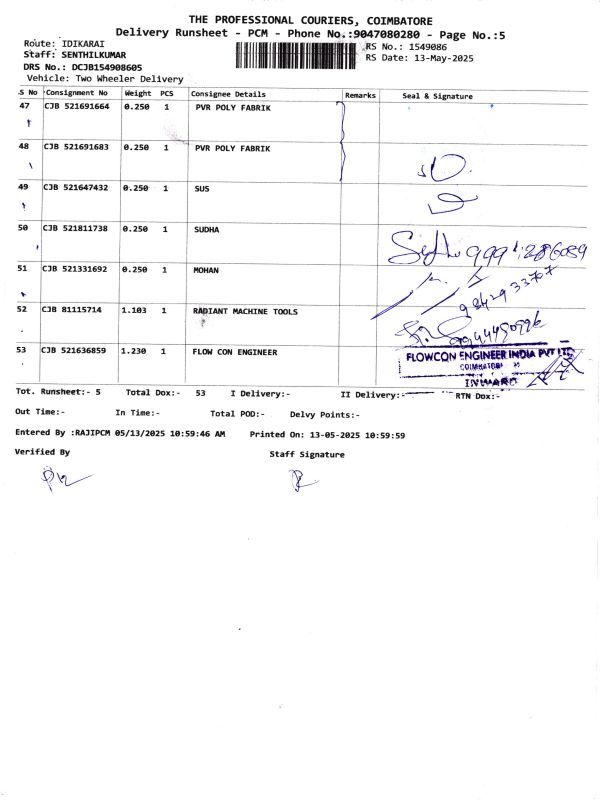 THE PROFESSIONAL COURIERS, COIMBATORE
Delivery Runsheet - PCM - Phone No.:9047080280 - Page No.:5
Route: IDIKARAI
RS No.: 1549086
Staff: SENTHILKUMAR
RS Date: 13-May-2025
DRS No.: DCJB154908605
Vehicle: Two Wheeler Delivery
S No Consignment No Weight PCS Consignee Details Remarks Seal & Signature
47 CJB 521691664 0.250 1 PVR POLY FABRIK
48 CJB 521691683 0.250 1 PVR POLY FABRIK
49 CJB 521647432 0.250 1 SUS
50 CJB 521811738 0.250 1 SUDHA
51 CJB 521331692 0.250 1 MOHAN
98429 33707
52 CJB 81115714 1.103 1 RADIANT MACHINE TOOLS
53 CJB 521636859 1.230 1 FLOW CON ENGINEER
FLOWCON ENGINEER INDIA PVT LTD
COIMBATORE
INWARD
Tot. Runsheet:- 5 Total Dox:- 53 I Delivery:- II Delivery:- RTN Dox:-
Out Time:- In Time:- Total POD:- Delvy Points:-
Entered By :RAJIPCM 05/13/2025 10:59:46 AM Printed On: 13-05-2025 10:59:59
Verified By Staff Signature